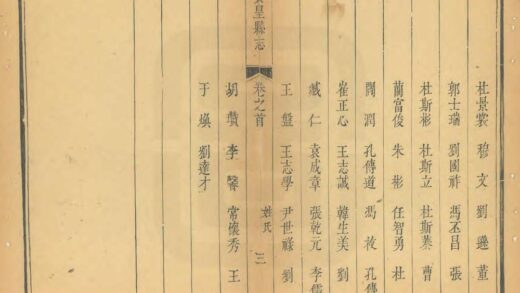 杜景裳 穆文 劉遜 董
郭士瑞 劉國祚 馮丕昌 張
杜斯彬 杜斯立 杜斯蓁 曹
藺富俊 朱彬 任智勇 杜
閻潤 孔傳道 馮 孔傳
崔正心 王志誠 韓生美 劉
臧仁 袁成章 張乾元 李儒
王盤 王志學 尹世祿 劉
皇縣志 卷之首 姓氏 三
胡瓚 李馨 常懷秀 王
于煥 劉達才